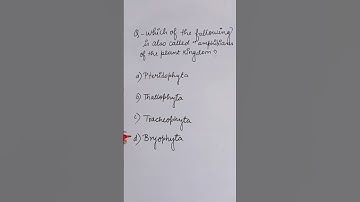 Q - Which of the following
is also called "amphibians
of the plant kingdom?
a) Pteridophyta
b) Thallophyta
c) Tracheophyta
d) Bryophyta